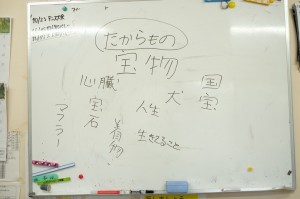 だからもの
宝物
国宝
犬
人生
生きてること
着物
心臓
宝石
マフラー